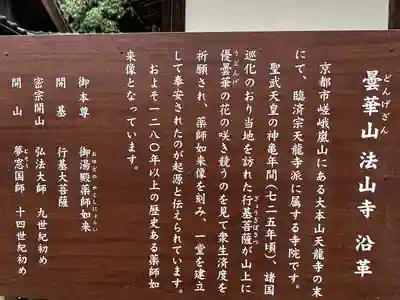 曇華山 法山寺 沿革
どんげざん
京都市嵯峨嵐山にある大本山天龍寺の末
にて、臨済宗天龍寺派に属する寺院です。
聖武天皇の神亀年間(七二五年頃)、諸国
巡化のおり当地を訪れた行基菩薩が山上に
ぎょうきぼさつ
優曇華の花の咲き競うのを見て衆生済度を
うどんげ
祈願され、薬師如来像を刻み、一堂を建立
して奉安されたのが起源と伝えられています。
およそ一二八〇年以上の歴史ある薬師如
来像となっています。
御本尊 御湯殿薬師如来
おゆどのやくしにょらい
開基 行基大菩薩
密宗開山 弘法大師 九世紀初め
開山 夢窓国師 十四世紀初め